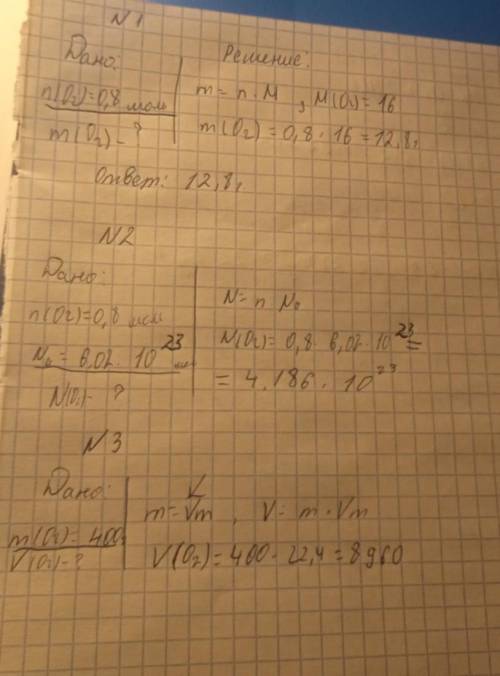 N 1
Дано:
n(O₂)=0,8 моль
m(O₂)-?
Решение:
m=n·M, M(O₂)=16
m(O₂)=0,8·16=12,8г
Ответ: 12,8г
N2
Дано:
n(O₂)=0,8 моль
N₀=6,02·10²³
N(O₂)-?
N=n·N₀
N(O₂)=0,8·6,02·10²³=
=4,186·10²³
N3
Дано:
m(O₂)=400г
V(O₂)-?
m=Vm, V=m·Vm
V(O₂)=400·22,4=8960